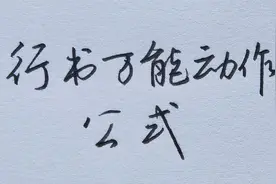 行书万能动作
公式